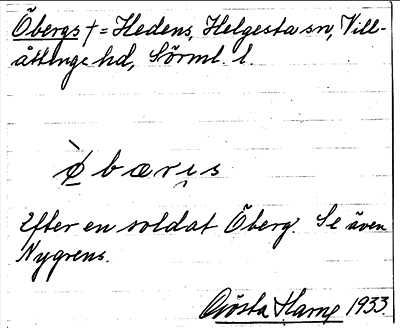 Öbergs † = Hedens, Helgesta sn, Vill-
åttinge hd, Sörml. l.
ø̀bærɪ̣s
Efter en soldat Öberg. Se även
Nygrens.
Gösta Harne 1933.